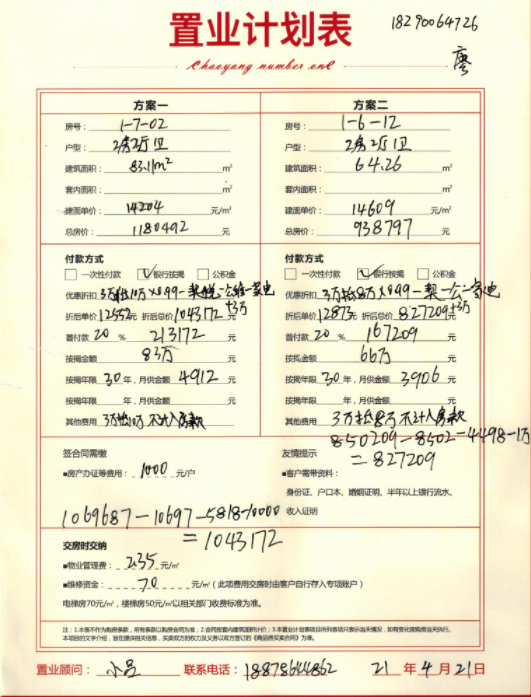 置业计划表
18290064726
廖
Chaoyang number one
方案一
房号：1-7-02
户型：2房2厅1卫
建筑面积：83.11m² m²
套内面积： m²
建面单价：14204 元/m²
总房价：1180492 元
方案二
房号：1-6-12
户型：2房2厅1卫
建筑面积：64.26 m²
套内面积： m²
建面单价：14609 元/m²
总房价：938797 元
付款方式
一次性付款 ✓银行按揭 公积金
优惠折扣 3万抵10万×0.99-契税-公维-家电
折后单价12552元 折后总价1043172元
+3万
首付款 20 % 213172 元
按揭金额 83万
按揭年限 30年，月供金额 4912 元
按揭年限 年，月供金额 元
其他费用 3万抵10万不计入房款
付款方式
一次性付款 ✓银行按揭 公积金
优惠折扣 3万抵8万×0.99-契-公-家电
折后单价12873元 折后总价827209元
+3万
首付款 20 % 167209 元
按揭金额 66万
按揭年限 30年，月供金额 3906 元
按揭年限 年，月供金额 元
其他费用 3万抵8万不计入房款
850209-8502-4498-1万
=827209
签合同需缴
■房产办证等费用：1000 元/户
1069687-10697-5818-10000
=1043172
友情提示
■客户需带资料：
身份证、户口本、婚姻证明、半年以上银行流水、
收入证明
交房时交纳
■物业管理费：2.35 元/㎡
■维修资金：70 元/㎡（此项费用交房时由客户自行存入专项账户）
电梯房70元/㎡，楼梯房50元/㎡以相关部门收费标准为准。
注：1.本表不作为购房条款，所有条款以购房合同为准；2.合同按套内建筑面积计价；3.本置业计划表项目所列各项只表示当天情况，如有变化按购房当天执行。
本项目的文字介绍，旨在提供相关信息，买卖双方的权力及义务以双方签订的《商品房买卖合同》为准。
置业顾问：小吕 联系电话：18878644862 21 年 4 月 21 日